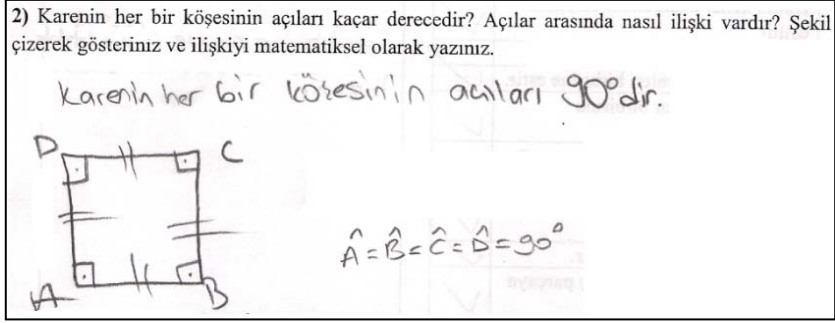 2) Karenin her bir köşesinin açıları kaçar derecedir? Açılar arasında nasıl ilişki vardır? Şekil
çizerek gösteriniz ve ilişkiyi matematiksel olarak yazınız.
Karenin her bir köşesinin açıları 90° dir.
D C
Â = B̂ = Ĉ = D̂ = 90°
A B